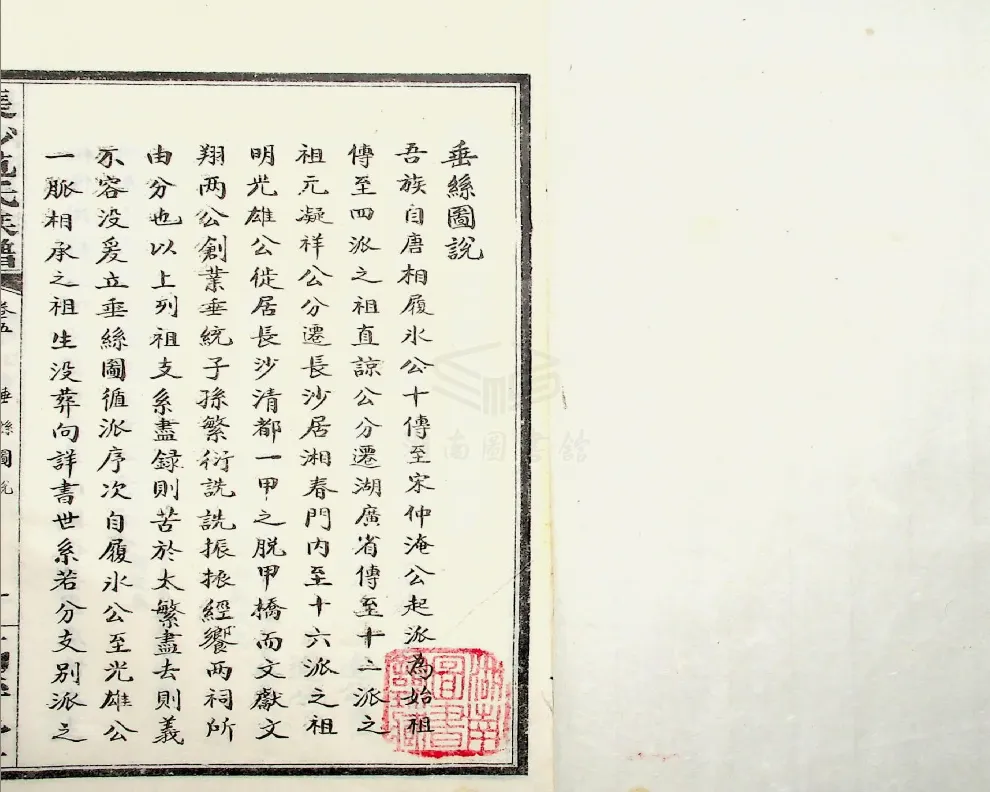 垂絲圖說
吾族自唐相履氷公十傳至宋仲淹公起派為始祖
傳至四派之祖直諒公分遷湖廣省傳至十二派之
祖元凝祥公分遷長沙居湘春門内至十六派之祖
明光雄公徙居長沙清都一甲之脱甲橋而文獻文
翔两公創業垂統子孫繁衍詵詵振振經饗两祠所
由分也以上列祖支系盡録則苦於太繁盡去則義
不容没爰立垂絲圖循派序次自履氷公至光雄公
一脈相承之祖生没葬向詳書世系若分支别派之
氏族譜
卷五
垂絲圖說
湖南圖書館